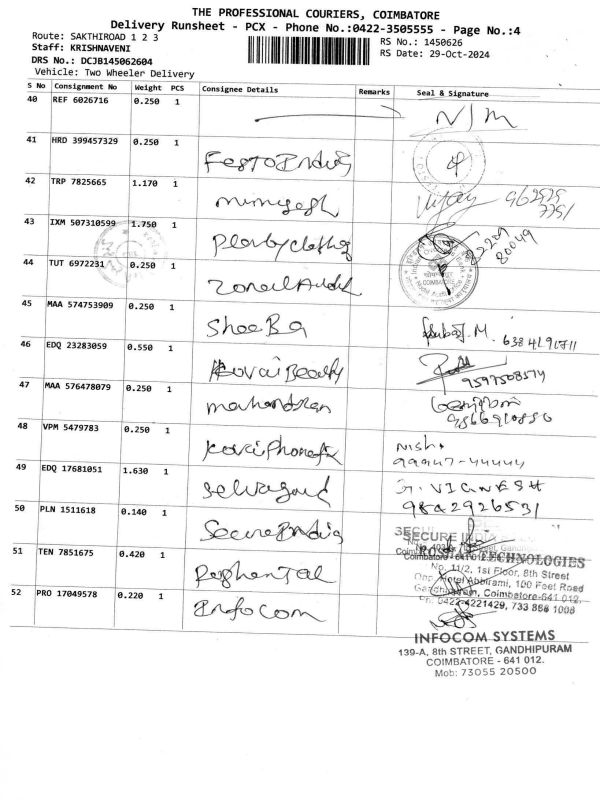 THE PROFESSIONAL COURIERS, COIMBATORE
Delivery Runsheet - PCX - Phone No.:0422-3505555 - Page No.:4
Route: SAKTHIROAD 1 2 3
Staff: KRISHNAVENI
DRS No.: DCJB145062604
Vehicle: Two Wheeler Delivery
RS No.: 1450626
RS Date: 29-Oct-2024
S No Consignment No Weight PCS Consignee Details Remarks Seal & Signature
40 REF 6026716 0.250 1 N/M
41 HRD 399457329 0.250 1 Festo India
42 TRP 7825665 1.170 1 Vijay
43 IXM 507310599 1.750 1
44 TUT 6972231 0.250 1 Zonal Audit
45 MAA 574753909 0.250 1 Shoe Ba
46 EDQ 23283059 0.550 1 Kovai Beauty 9597508574
47 MAA 576478079 0.250 1 mahendran
48 VPM 5479783 0.250 1 Kovai Phone Nisha
99947-44444
49 EDQ 17681051 1.630 1 G. VIGNESH
9842926531
50 PLN 1511618 0.140 1 Secure India
SECURE
Coimbatore - 641 012.
51 TEN 7851675 0.420 1
TECHNOLOGIES
No. 11/2, 1st Floor, 8th Street
Opp. Hotel Abbirami, 100 Feet Road
Gandhipuram, Coimbatore-641 012.
Ph: 0422-4221429, 733 888 1008
52 PRO 17049578 0.220 1 Infocom
INFOCOM SYSTEMS
139-A, 8th STREET, GANDHIPURAM
COIMBATORE - 641 012.
Mob: 73055 20500